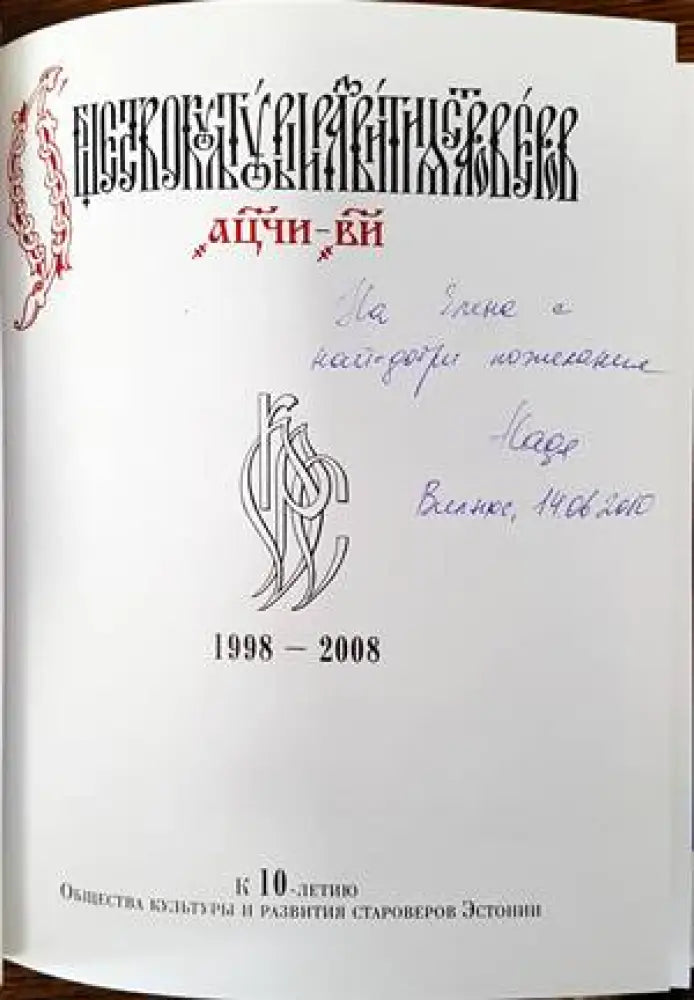 Общество культуры и развития староверов
҂АЦЧИ-҂ВИ
На Елена с
най-добри пожелания
Надя
Вилнюс, 14.06.2010
1998 – 2008
К 10-летию
Общества культуры и развития староверов Эстонии